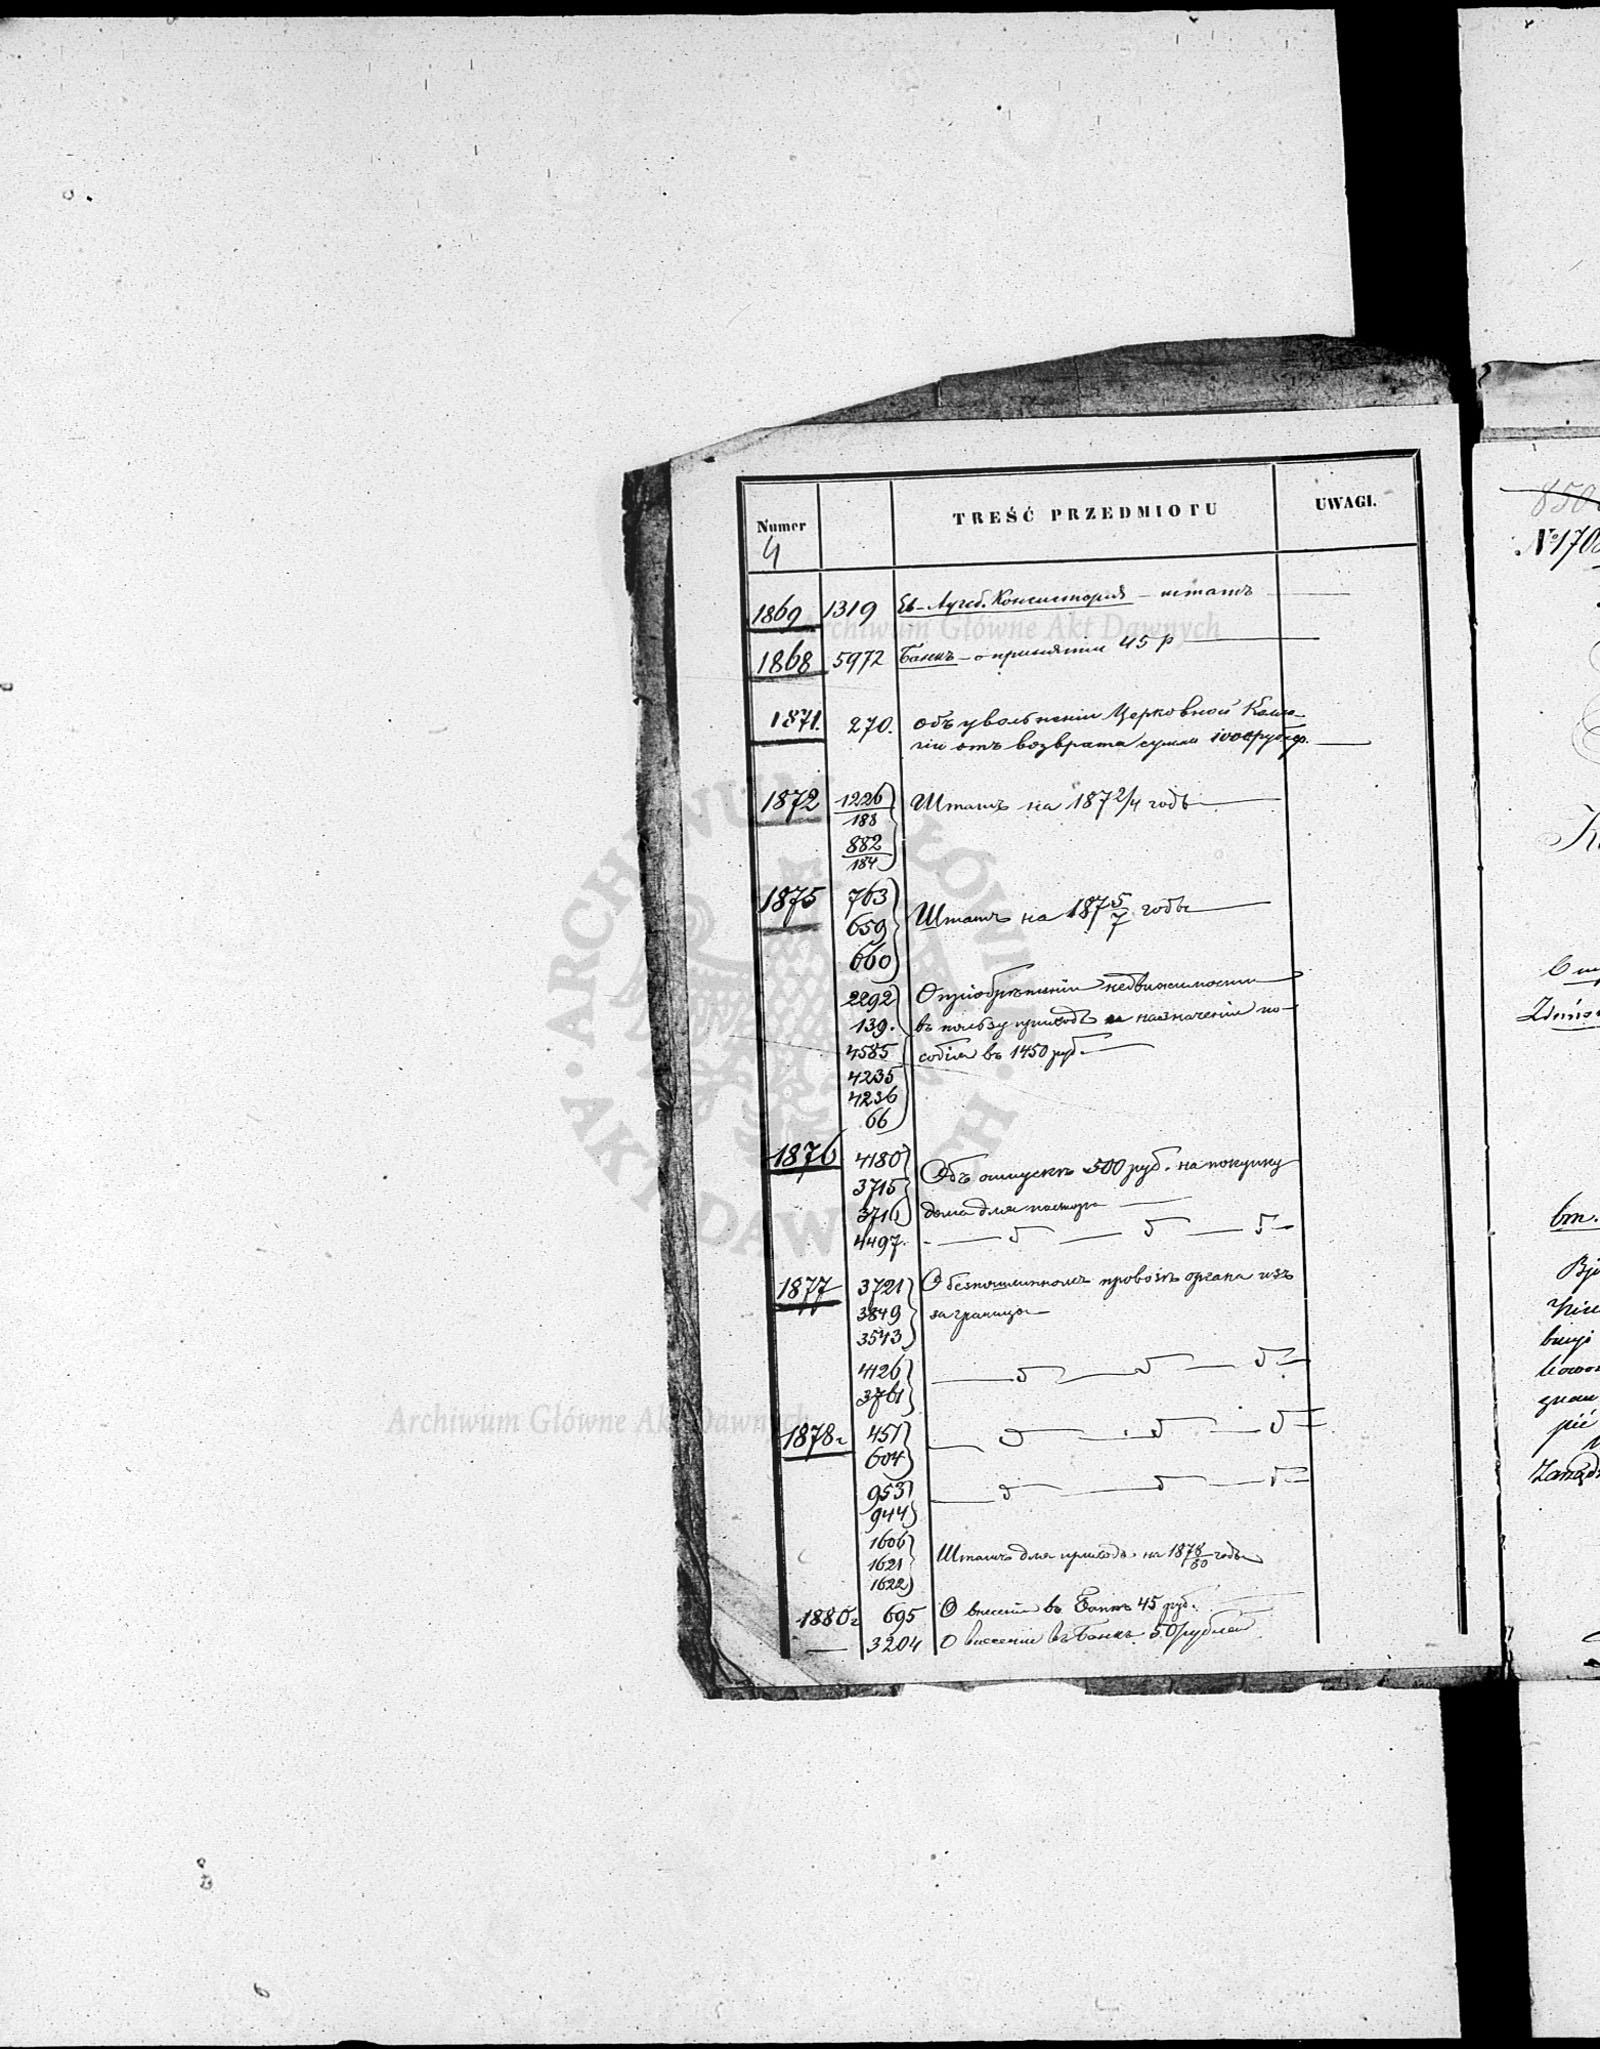 Numer TREŚĆ PRZEDMIOTU UWAGI.
4
1869 1319 Ев-Аугсб. Консисторія - штатъ
1868 5972 Банкъ - о принятіи 45 р
1871. 270. Объ увольненіи Церковной Колле-
гіи отъ возврата суммы
1872 1226 Штатъ на 1872/4 годы
188
882
184
1875 763
659 Штатъ на 1875/7 годы
660
2292 О пріобрѣтеніи недвижимости
139. въ пользу прихода назначеніи по-
4585 собія въ 1450 руб.
4235
4236
66
1876 4180 Объ отпускѣ 500 руб. на покупку
3715
3716 дома для пастора
4497.
1877 3721 О безпошлинномъ провозѣ органа изъ
3849 за границы
3543
4126
3761
1878г 451
604
953
944
1606
1621 Штатъ для прихода на 1878/80 годы
1622
1880г 695 О внесеніи въ Банкъ 45 руб.
3204 О внесеніи въ Банкъ 50 рублей
850
№ 170
Archiwum Główne Akt Dawnych
ARCHIWUM GŁÓWNE AKT DAWNYCH
Archiwum Główne Akt Dawnych